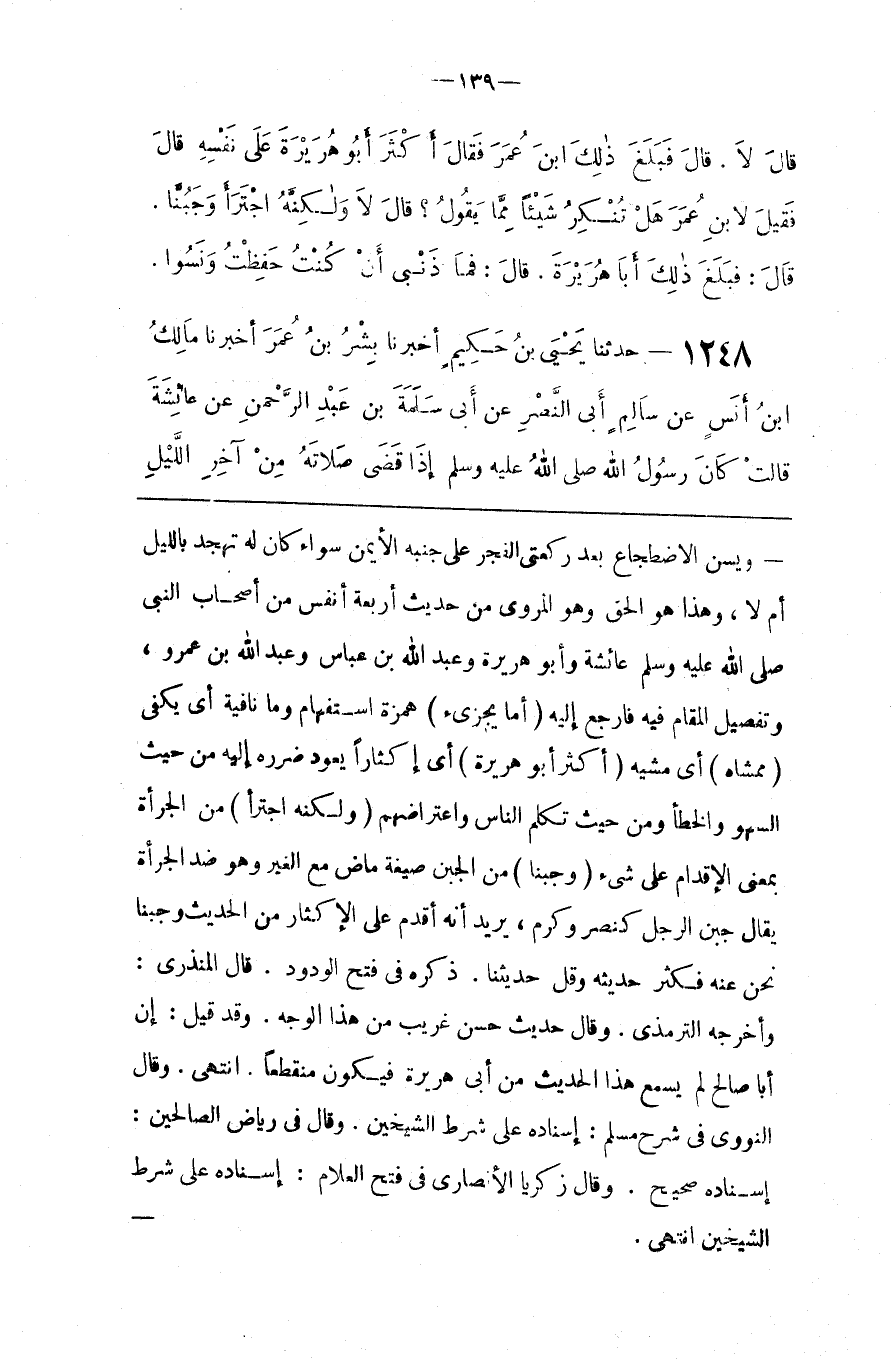 — ١٣٩ —
قالَ لاَ . قالَ فَبَلَغَ ذٰلِكَ ابنَ عُمَرَ فَقالَ أَكْثَرَ أَبُو هُرَيْرَةَ عَلَى نَفْسِهِ قالَ
فَقِيلَ لابنِ عُمَرَ هَلْ تُنْـكِرُ شَيْئاً مِمَّا يَقُولُ ؟ قالَ لاَ وَلٰـكِنَّهُ اجْتَرَأَ وَجَبُنَّا .
قَالَ : فَبَلَغَ ذٰلِكَ أَبا هُرَيْرَةَ . قالَ : فَمَا ذَنْبِى أَنْ كُنْتُ حَفِظْتُ وَنَسُوا .
١٢٤٨ — حدثنا يَحْيَى بنُ حَـكِيمٍ أخبرنا بِشْرُ بنُ عُمَرَ أخبرنا مَالِكُ
ابنُ أَنَسٍ عن سَالِمٍ أَبى النَّضْرِ عن أَبى سَلَمَةَ بن عَبْدِ الرَّحْمنِ عن عائِشَةَ
قالت كَانَ رسُولُ اللهِ صلى اللهُ عليه وسلم إِذَا قَضَى صَلاَتَهُ مِنْ آخِرِ اللَّيْلِ
— ويسن الاضطجاع بعد ركعتى الفجر على جنبه الأيمن سواء كان له تهجد بالليل
أم لا ، وهذا هو الحق وهو المروى من حديث أربعة أنفس من أصحـاب النبى
صلى الله عليه وسلم عائشة وأبو هريرة وعبد الله بن عباس وعبد الله بن عمرو ،
وتفصيل المقام فيه فارجع إليه ( أما يجزىء ) همزة اسـتفهام وما نافية أى يكفى
( ممشاه ) أى مشيه ( أكثر أبو هريرة ) أى إكثاراً يعود ضرره إليه من حيث
السهو والخطأ ومن حيث تـكلم الناس واعتراضهم ( ولـكنه اجترأ ) من الجرأة
بمعنى الإقدام على شىء ( وجبنا ) من الجبن صيغة ماض مع الغير وهو ضد الجرأة
يقال جبن الرجل كنصر وكرم ، يريد أنه أقدم على الإكثار من الحديث وجبنا
نحن عنه فـكثر حديثه وقل حديثنا . ذكره فى فتح الودود . قال المنذرى :
وأخرجه الترمذى . وقال حديث حسن غريب من هذا الوجه . وقد قيل : إن
أبا صالح لم يسمع هذا الحديث من أبى هريرة فيـكون منقطعاً . انتهى . وقال
النووى فى شرح مسلم : إسناده على شرط الشيخين . وقال فى رياض الصالحين :
إسـناده صحيح . وقال زكريا الأنصارى فى فتح العلام : إسـناده على شرط
الشيخين انتهى . —